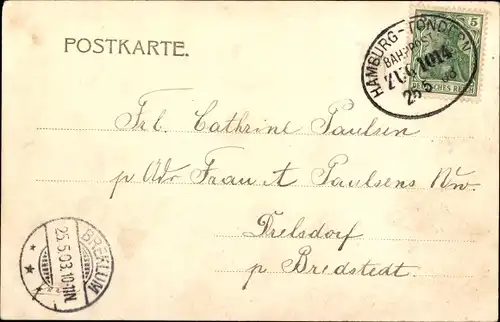 POSTKARTE.
HAMBURG-TONDERN
BAHNPOST
ZUG 1014
25 5 3
5
DEUTSCHES REICH
Frl. Cathrine Paulsen
p Adr Frau A Paulsens Ww.
Drelsdorf
p Bredstedt.
BREKLUM
25.5.03.10-11N